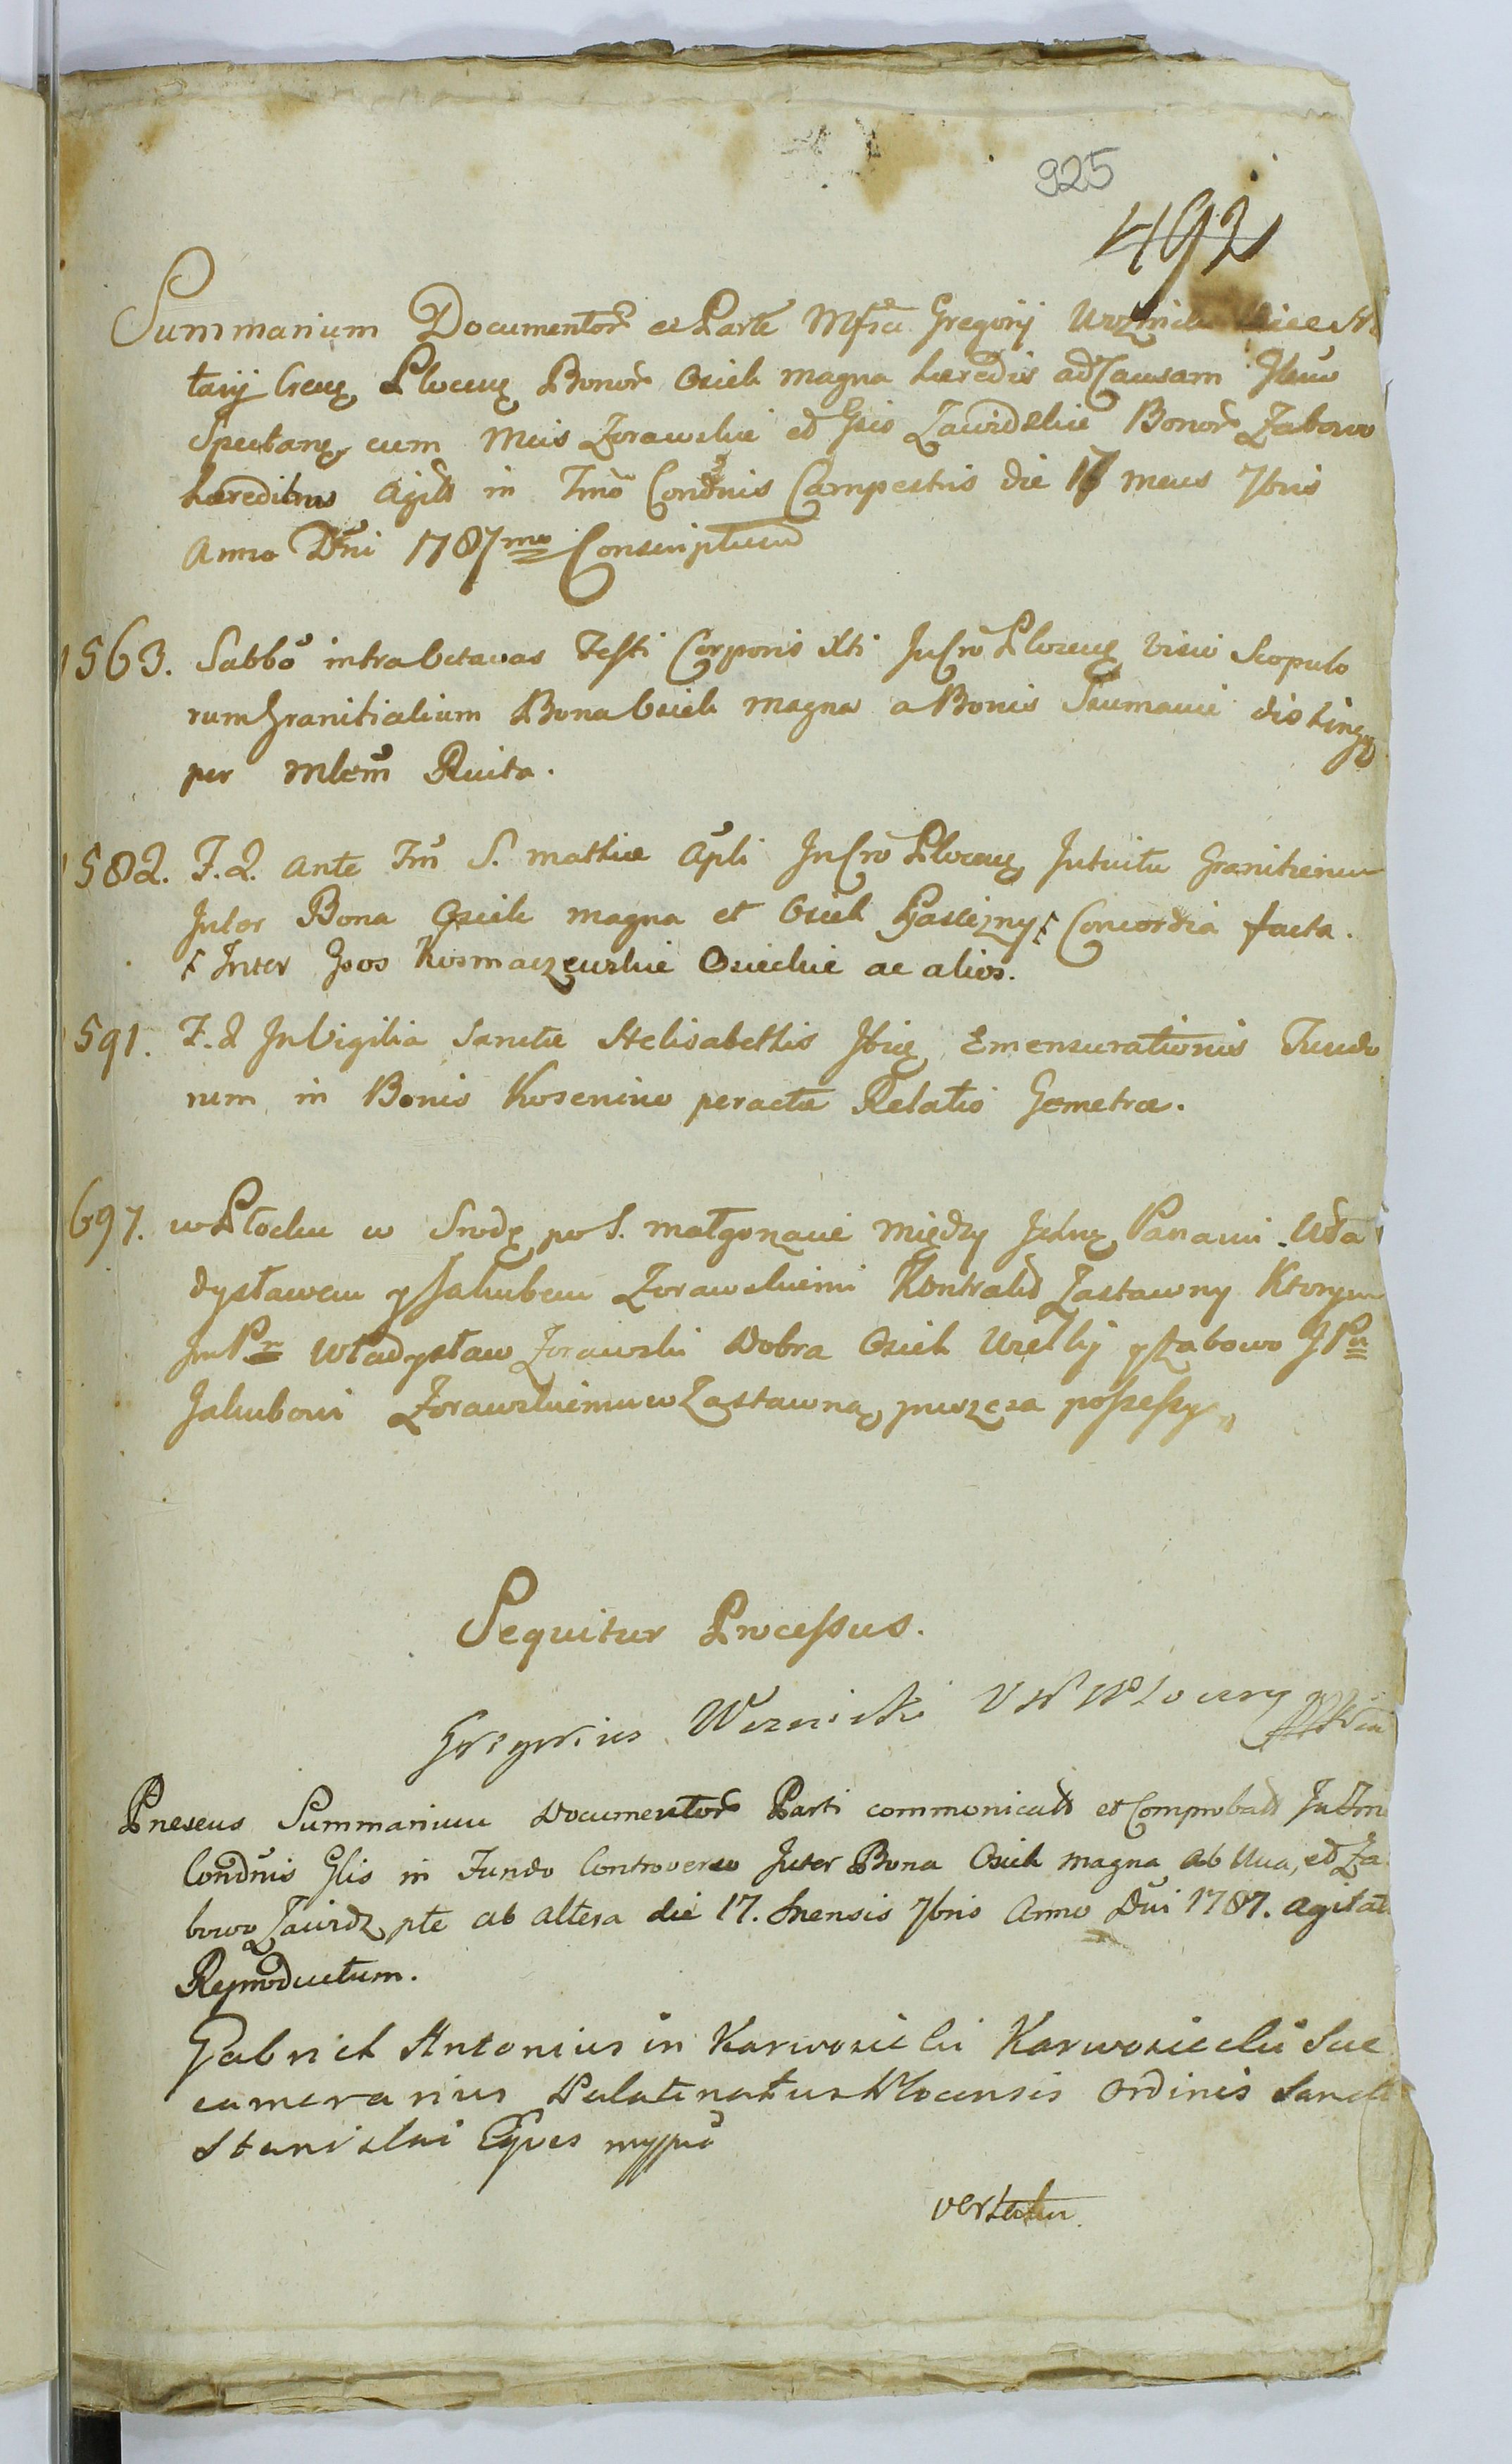 925
492
Summarium Documentor ex Parte Mfici Gregorij Woznicki Vice
tarij Crens Plocens Bonor Osiek magna hæredis ad Causam Ilmo
Spectans cum Mcis Zorawskie et Gsis Zawidzkie Bonor Zabowo
hæredibus Agitt in Tmo Condnis Campestris die 17 mens 7bris
Anno Dni 1787mo Conscriptum
1563. Sabbo intra Octavas Festi Corporis Xti In Cro Plocens visio Scopulo
rum Granitialium Bona Osiek magna a Bonis Szumanie disting
per Mlem Ruita.
1582. F. 2. ante Fm S. Mathiæ Apli In Cro Plocens Intuitu Granicierum
Inter Bona Osiek magna et Osiek Gasiczny Concordia facta.
Inter Gsos Kosmaczewskie Osieckie ac alios.
591. F. 2 In Vigilia Sanctæ Helisabethis Ibid Emensurationis Fundo
rum in Bonis Kosenino peractæ Relatio Gemetræ.
697. w Płocku w Srodę po S. małgorzacie między Ichmę Panami Wła
dysławem y Jakubem Zorawskiemi Kontrakt Zastawny Ktorym
Im Pn Władysław Zorawski Dobra Osiek Wielki y Zabowo J Pn
Jakubowi Zorawskiemu w Zastawną puszcza possessyą
Sequitur Processus.
Gregorius Woznicki
Præsens Summarium Documentor Parti communicatt et Comprobatt In Tmo
Condnis Glis in Fundo Controverso Inter Bona Osiek magna ab Una, et Za
bowo Zawidz pte ab altera die 17. Mensis 7bris Anno Dni 1787. agitat
Reproductum.
Gabriel Antonius in Karwosiecki Karwosiecki Suc
camerarius Palatinatus Plocensis Ordinis Sancti
Stanislai Eques mppa
vertatur